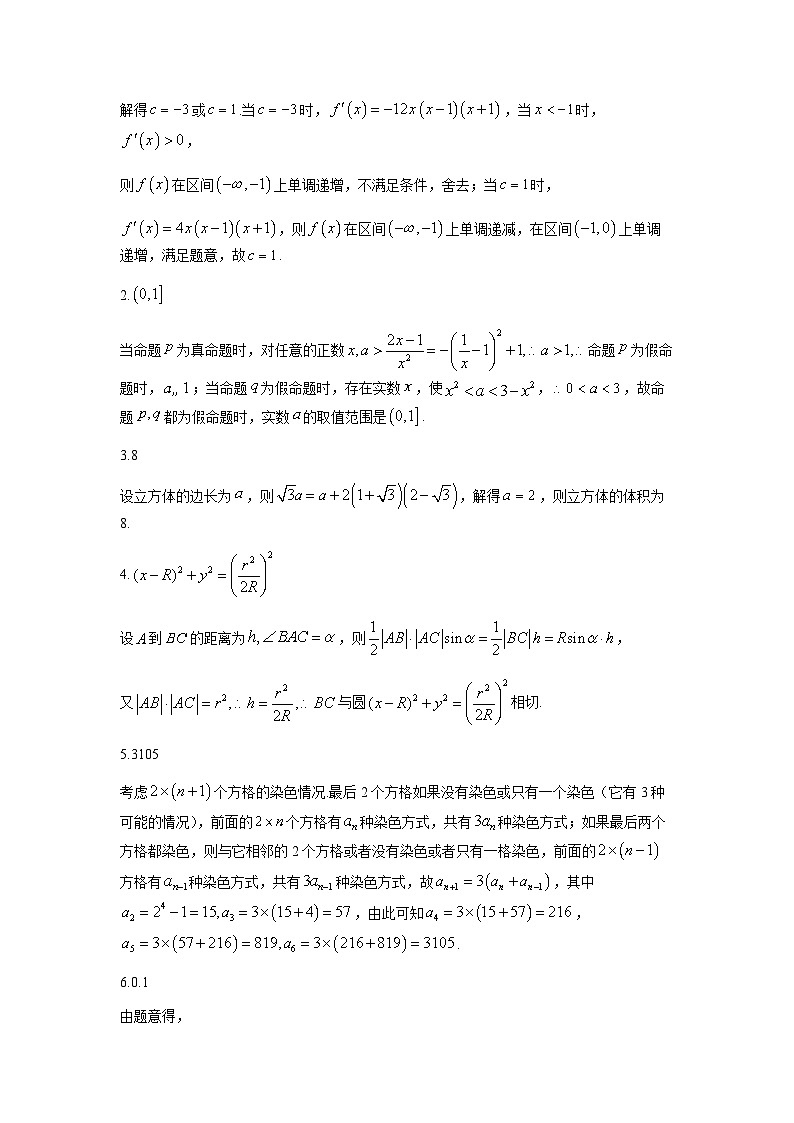 解得c = −3或c = 1.当c = −3时，f ′(x) = −12x(x−1)(x+1)，当x < −1时，
f ′(x) > 0，
则f (x)在区间(−∞,−1)上单调递增，不满足条件，舍去；当c = 1时，
f ′(x) = 4x(x−1)(x+1)，则f (x)在区间(−∞,−1)上单调递减，在区间(−1,0)上单调
递增，满足题意，故c = 1.
2. (0,1]
当命题p为真命题时，对任意的正数x, a > (2x−1)/x² = −(1/x −1)² +1,∴ a > 1,∴ 命题p为假命
题时，a,, 1；当命题q为假命题时，存在实数x，使x² < a < 3−x²，∴ 0 < a < 3，故命
题p,q都为假命题时，实数a的取值范围是(0,1].
3.8
设立方体的边长为a，则√3a = a + 2(1+√3)(2−√3)，解得a = 2，则立方体的体积为
8.
4. (x−R)² + y² = (r²/2R)²
设A到BC的距离为h,∠BAC = α，则1/2|AB|·|AC|sinα = 1/2|BC|h = Rsinα·h，
又|AB|·|AC| = r²,∴ h = r²/2R,∴ BC与圆(x−R)² + y² = (r²/2R)²相切.
5.3105
考虑2×(n+1)个方格的染色情况.最后2个方格如果没有染色或只有一个染色（它有3种
可能的情况），前面的2×n个方格有aₙ种染色方式，共有3aₙ种染色方式；如果最后两个
方格都染色，则与它相邻的2个方格或者没有染色或者只有一格染色，前面的2×(n−1)
方格有aₙ₋₁种染色方式，共有3aₙ₋₁种染色方式，故aₙ₊₁ = 3(aₙ + aₙ₋₁)，其中
a₂ = 2⁴ −1 = 15, a₃ = 3×(15+4) = 57，由此可知a₄ = 3×(15+57) = 216，
a₅ = 3×(57+216) = 819, a₆ = 3×(216+819) = 3105.
6.0.1
由题意得，